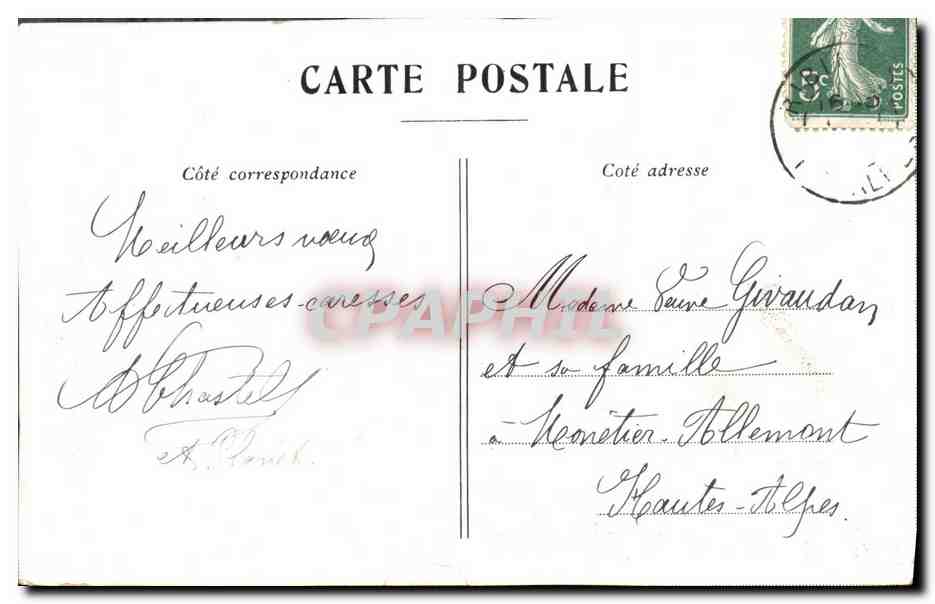 CARTE POSTALE
5 c
POSTES
Côté correspondance
Coté adresse
Meilleurs vœux
Affectueuses caresses
Chastel
et
Madame Veuve Givaudan
et sa famille
à Monêtier-Allemont
Hautes-Alpes.
CPAPHIL